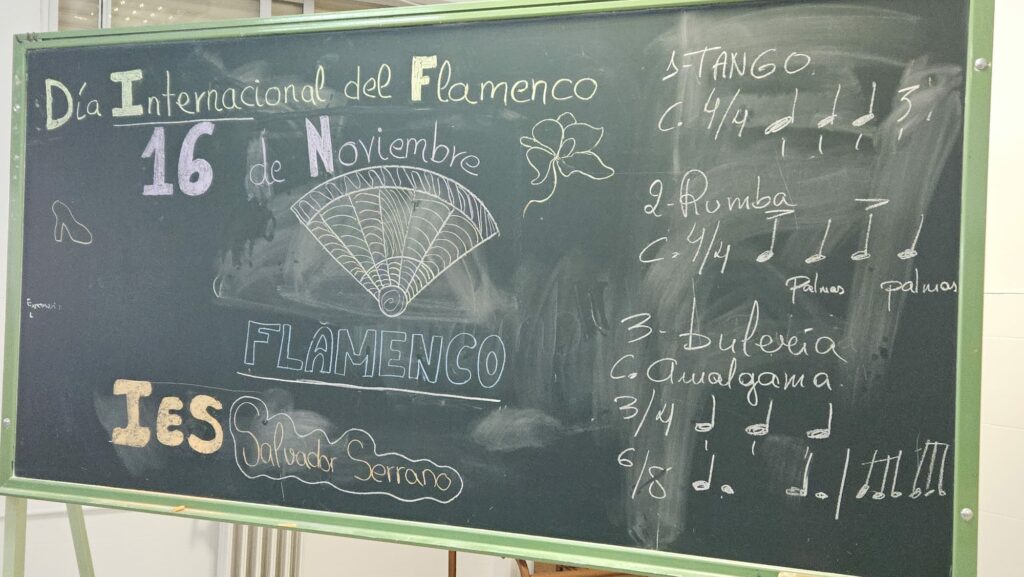 Día Internacional del Flamenco
16 de Noviembre
FLAMENCO
IES
Salvador Serrano
1-TANGO
C. 4/4
2-Rumba
C. 4/4
Palmas palmas
3-bulería
C. Amalgama
3/4
6/8